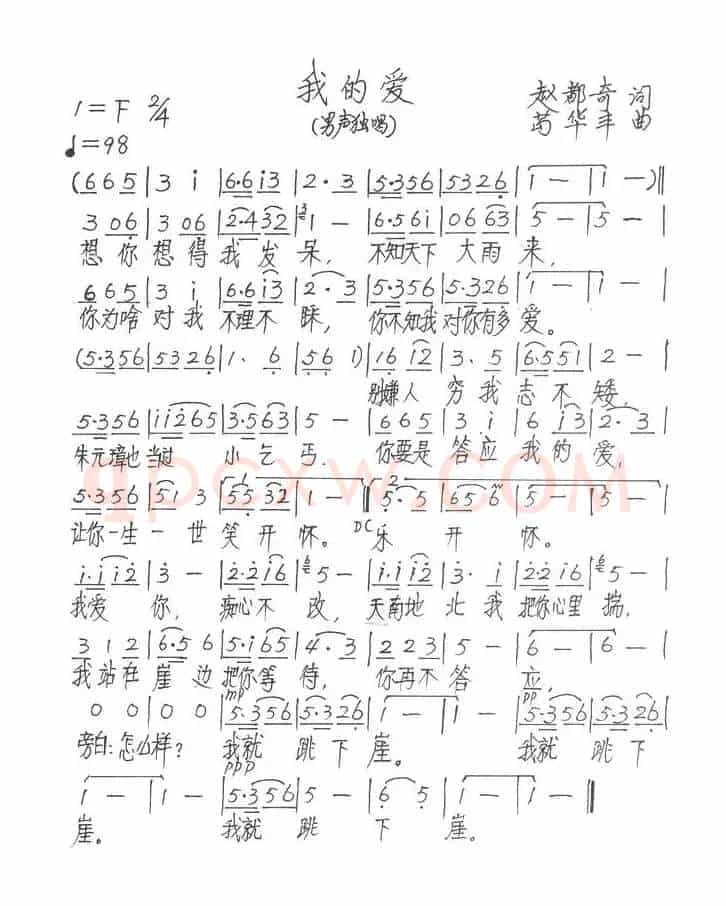 我的爱
(男声独唱)
1=F 2/4
♩=98
赵都奇 词
苟华丰 曲
(6 6 5 | 3 i | 6·6 i3 | 2·3 | 5·356 | 5326 | 1 — | 1 — ) ‖
3 06 | 3 06 | 2·432 | 1 — | 6·561 | 06 63 | 5 — | 5 — |
想你想得我发呆，不知天下大雨来，
6 6 5 | 3 i | 6·6 i3 | 2·3 | 5·356 | 5·326 | 1 — | 1 — |
你为啥对我不理不睬，你不知我对你有多爱。
(5·356 | 5326 | 1、6 | 56 1) | 16 12 | 3、5 | 6·551 | 2 — |
别嫌人穷我志不矮，
5·356 | i i 2 6 5 | 3·563 | 5 — | 6 6 5 | 3 i | 6 i3 | 2·3 |
朱元璋也当过小乞丐．你要是答应我的爱，
5·356 | 5 1 3 | 55 32 | 1 — ‖ 5·5 | 65 6 | 5 — | 5 — |
让你一生一世笑开怀。DC乐开怀。
i·i i2 | 3 — | 2·2 i6 | 5 — | i·i i2 | 3· i | 22 i6 | 5 — |
我爱你，痴心不改，天南地北我把你心里揣，
3 1 2 | 6·5 6 | 5·i65 | 4·3 | 2 2 3 | 5 — | 6 — | 6 — |
我站在崖边把你等待，你再不答应，
mp pp
0 0 | 0 0 | 5·356 | 5·326 | 1 — | 1 — | 5·356 | 5·326 |
旁白：怎么样？我就跳下崖。我就跳下
ppp
1 — | 1 — | 5·356 | 5 — | 6 5 | 1 — | 1 — ‖
崖。我就跳下崖。
qpcxw.com